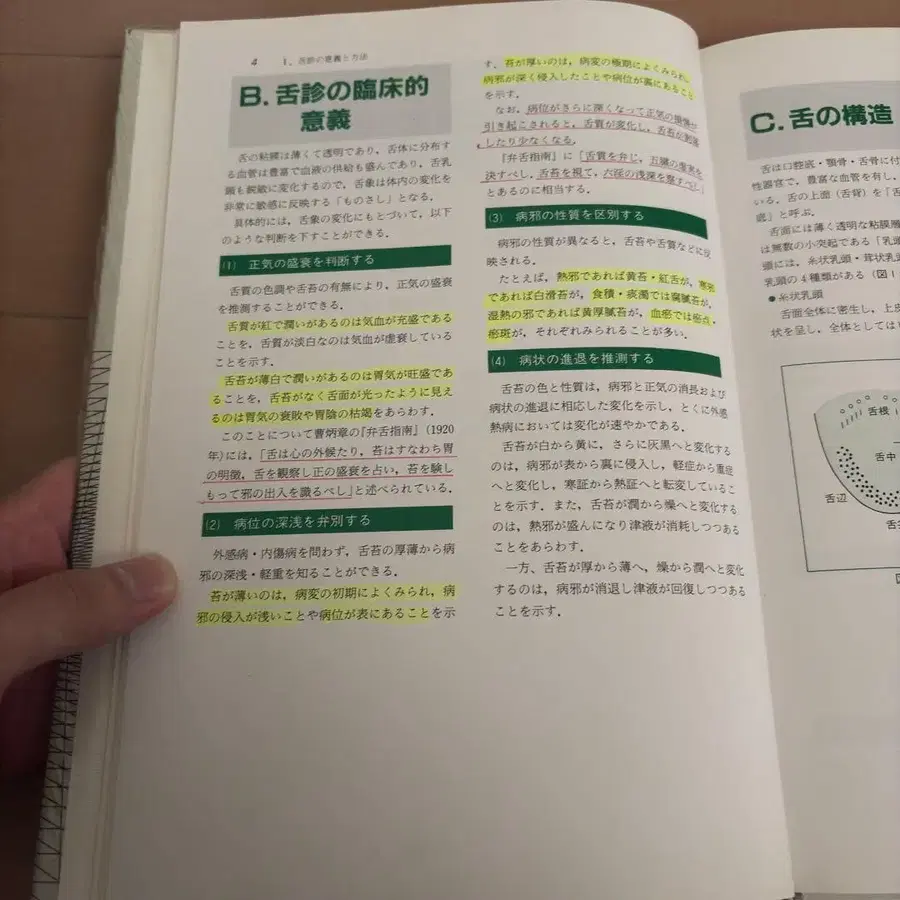 4
1. 舌診の意義と方法
B. 舌診の臨床的
意義
舌の粘膜は薄くて透明であり，舌体に分布す
る血管は豊富で血液の供給も盛んであり，舌乳
頭も鋭敏に変化するので，舌象は体内の変化を
非常に敏感に反映する「ものさし」となる．
具体的には，舌象の変化にもとづいて，以下
のような判断を下すことができる．
(1) 正気の盛衰を判断する
舌質の色調や舌苔の有無により，正気の盛衰
を推測することができる．
舌質が紅で潤いがあるのは気血が充盛である
ことを，舌質が淡白なのは気血が虚衰している
ことを示す．
舌苔が薄白で潤いがあるのは胃気が旺盛であ
ることを，舌苔がなく舌面が光ったように見え
るのは胃気の衰敗や胃陰の枯竭をあらわす．
このことについて曹炳章の『弁舌指南』(1920
年)には，「舌は心の外候たり，苔はすなわち胃
の明徴，舌を観察し正の盛衰を占い，苔を験し
もって邪の出入を識るべし」と述べられている．
(2) 病位の深浅を弁別する
外感病・内傷病を問わず，舌苔の厚薄から病
邪の深浅・軽重を知ることができる．
苔が薄いのは，病変の初期によくみられ，病
邪の侵入が浅いことや病位が表にあることを示
す．苔が厚いのは，病変の極期によくみられ，
病邪が深く侵入したことや病位が裏にあること
を示す．
なお，病位がさらに深くなって正気の損傷が
引き起こされると，舌質が変化し，舌苔が剝落
したり少なくなる．
『弁舌指南』に「舌質を弁じ，五臓の虚実を
決すべし，舌苔を視て，六淫の浅深を察すべし」
とあるのに相当する．
(3) 病邪の性質を区別する
病邪の性質が異なると，舌苔や舌質などに反
映される．
たとえば，熱邪であれば黄苔・紅舌が，寒邪
であれば白滑苔が，食積・痰濁では腐膩苔が，
湿熱の邪であれば黄厚膩苔が，血瘀では瘀点・
瘀斑が，それぞれみられることが多い．
(4) 病状の進退を推測する
舌苔の色と性質は，病邪と正気の消長および
病状の進退に相応した変化を示し，とくに外感
熱病においては変化が速やかである．
舌苔が白から黄に，さらに灰黒へと変化する
のは，病邪が表から裏に侵入し，軽症から重症
へと変化し，寒証から熱証へと転変しているこ
とを示す．また，舌苔が潤から燥へと変化する
のは，熱邪が盛んになり津液が消耗しつつある
ことをあらわす．
一方，舌苔が厚から薄へ，燥から潤へと変化
するのは，病邪が消退し津液が回復しつつある
ことを示す．
C. 舌の構造
舌は口腔底・顎骨・舌骨に付
性器官で，豊富な血管を有し，
いる．舌の上面（舌背）を「舌
底」と呼ぶ．
舌面には薄く透明な粘膜層
は無数の小突起である「乳頭
頭には，糸状乳頭・茸状乳頭
乳頭の4種類がある（図1-
●糸状乳頭
舌面全体に密生し，上皮
状を呈し，全体としては
舌根
舌中
舌辺